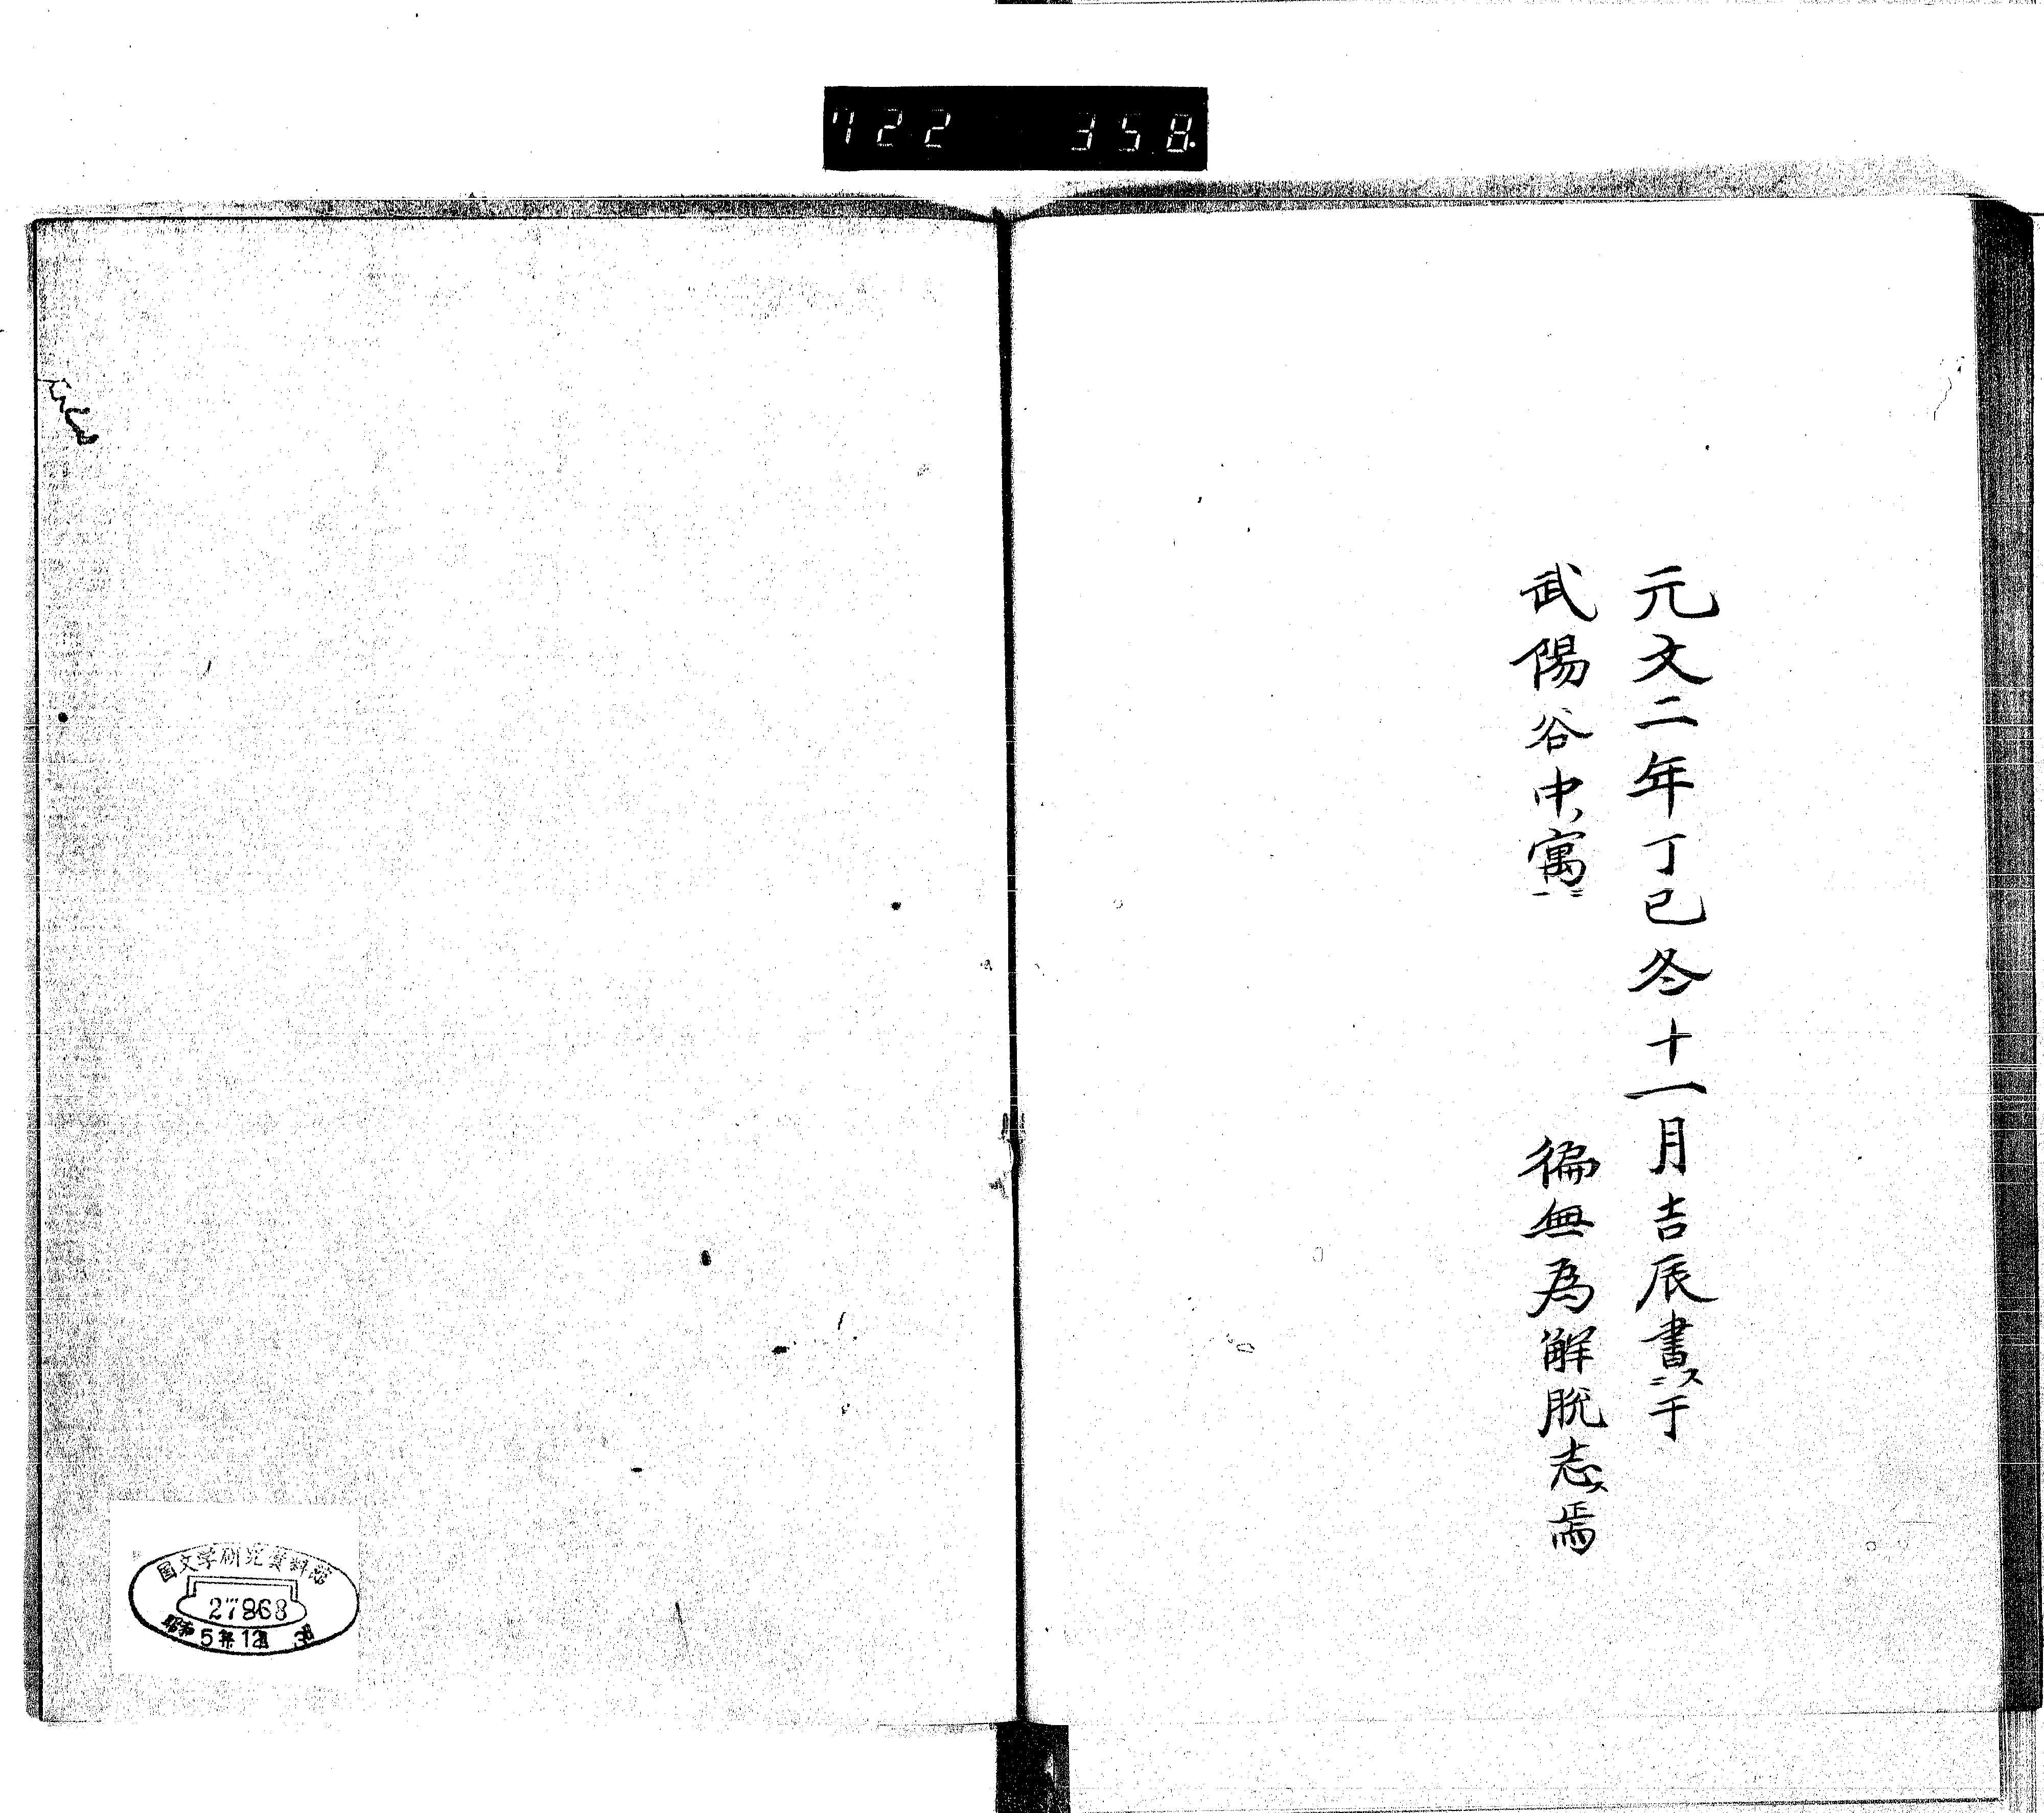 722 358.
元文二年丁巳冬十一月吉辰書ス二于
武陽谷中ノ寓ニ一 徧無為解脱志ス焉
国文学研究資料館
27868
昭和